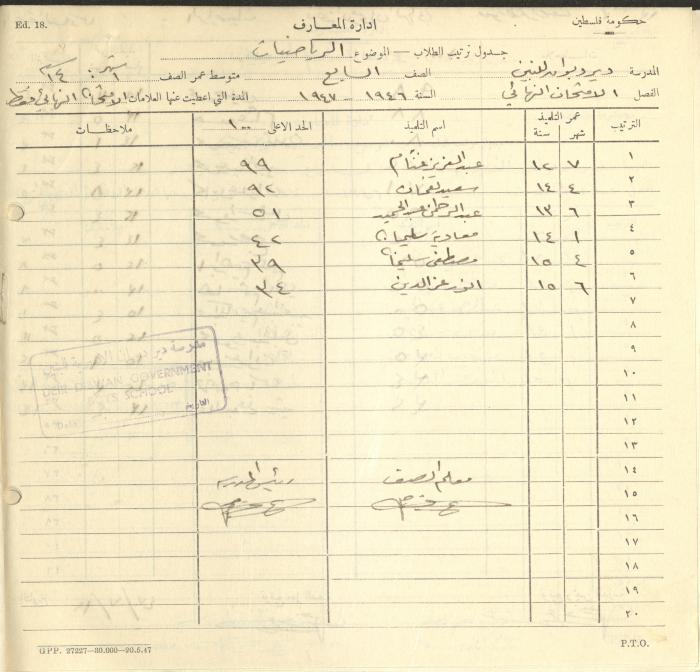 Ed. 18. ادارة المعارف حكومة فلسطين
جدول ترتيب الطلاب — الموضوع الرياضيات
المدرسة ديردبوان للبنين الصف السابع متوسط عمر الصف ١ شهر ١٤ سنة
الفصل الامتحان النهائي السنة ١٩٤٦ - ١٩٤٧ المدة التي اعطيت عنها العلامات الامتحان النهائي فقط
الترتيب عمر التلميذ شهر سنة اسم التلميذ الحد الاعلى ١٠٠ ملاحظات
١ ٧ ١٢ عبد العزيز غنام ٩٩
٢ ٤ ١٤ سعيد نعمان ٩٢
٣ ٦ ١٣ عبد الرحمن عبد الحميد ٥١
٤ ١ ١٤ معاوية سليمان ٤٢
٥ ٤ ١٥ مصطفى سليمان ٣٩
٦ ٦ ١٥ انور عز الدين ٣٤
٧
٨
٩
١٠
١١
١٢
١٣
١٤ معلم الصف رئيس المدرسة
١٥
١٦
١٧
١٨
١٩
٢٠
مدرسة دير دبوان
DEIR DIWAN GOVERNMENT
SCHOOL
التاريخ
GPP. 27227—30.000—20.5.47 P.T.O.